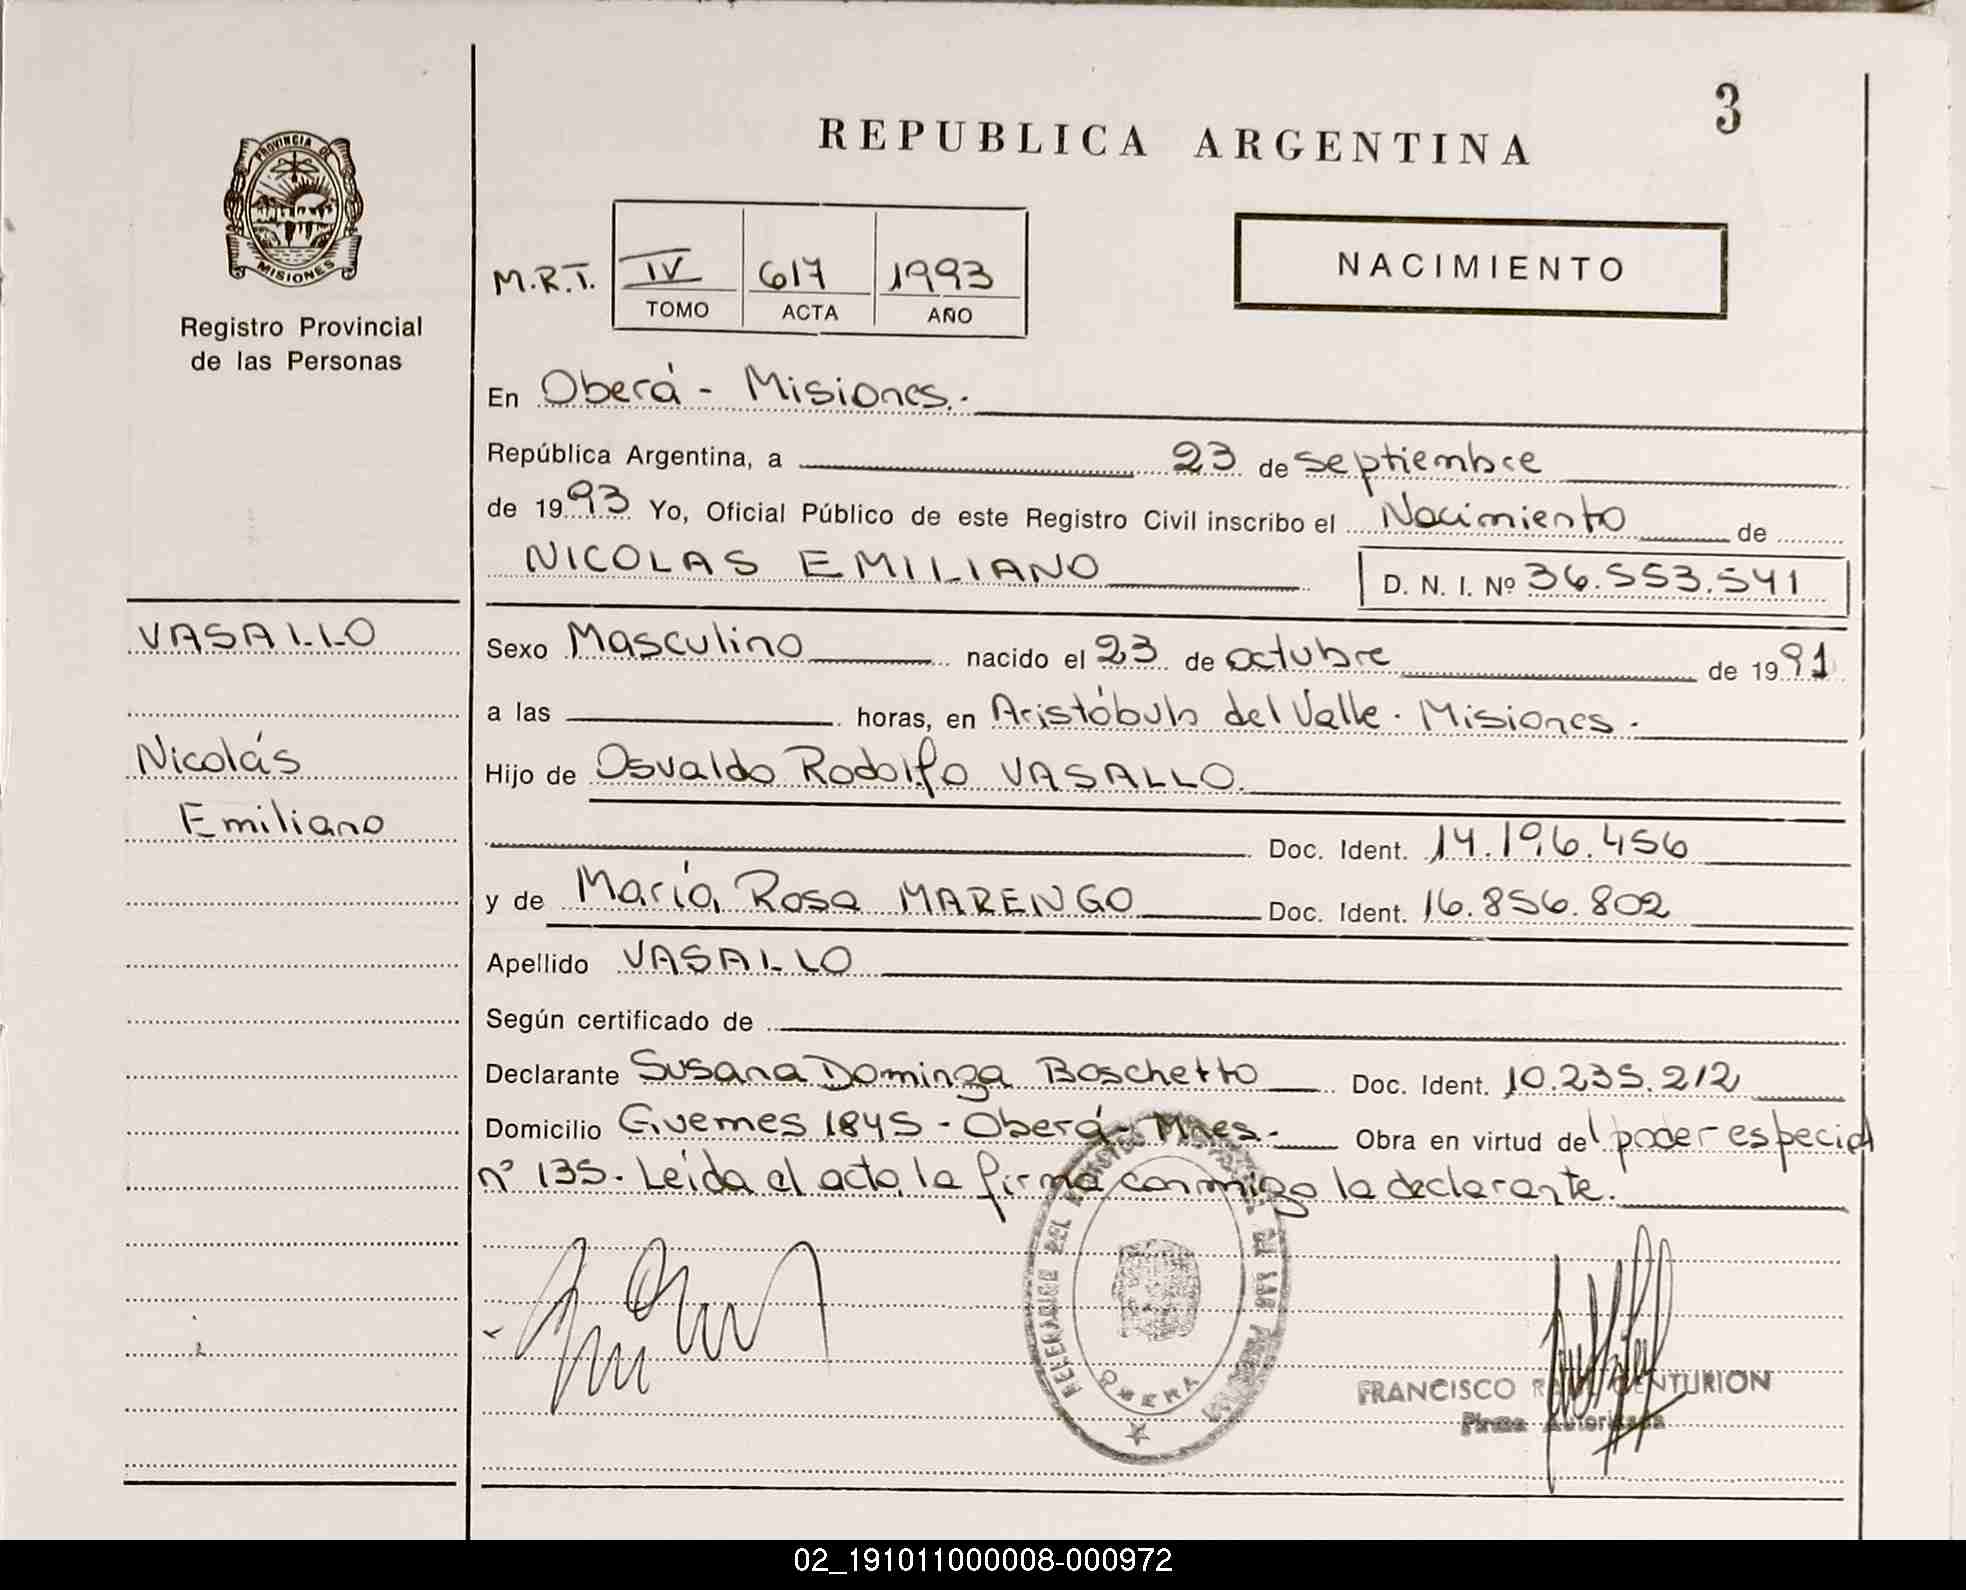 3
REPUBLICA ARGENTINA
PROVINCIA DE
MISIONES
Registro Provincial
de las Personas
M.R.T. IV 617 1993
TOMO ACTA AÑO
NACIMIENTO
En Oberá - Misiones.-
República Argentina, a 23 de septiembre
de 1993 Yo, Oficial Público de este Registro Civil inscribo el Nacimiento de
NICOLAS EMILIANO D. N. I. Nº 36.553.541
VASALLO
Nicolás
Emiliano
Sexo Masculino nacido el 23 de octubre de 1991
a las horas, en Aristóbulo del Valle - Misiones -
Hijo de Osvaldo Rodolfo VASALLO.
Doc. Ident. 14.196.456
y de María Rosa MARENGO Doc. Ident. 16.856.802
Apellido VASALLO
Según certificado de
Declarante Susana Dominga Boschetto Doc. Ident. 10.235.212
Domicilio Guemes 1845 - Oberá - Mnes - Obra en virtud del poder especial
nº 135. Leída el acta, la firma conmigo la declarante.
DEL DE LAS
OBERA
FRANCISCO CENTURION
Firma Autorizada
02_191011000008-000972